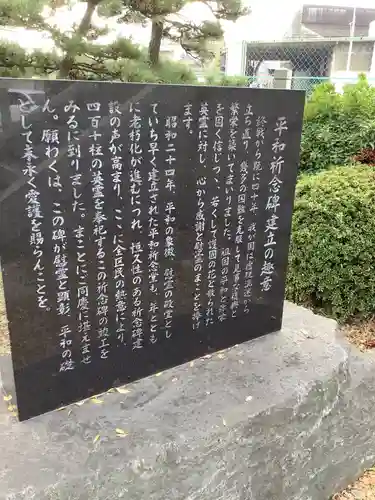 平和祈念碑建立の趣意
終戦から既に四十年、我が国は虚脱混迷から
立ち直り、幾多の国難を克服して見事な復興と
繁栄を築いてまいりました。祖国の平和と弥栄
を固く信じつつ、若くして護国の花と散られた
英霊に対し、心から感謝と慰霊のまことを捧げ
ます。
昭和二十四年、平和の象徴、慰霊の殿堂とし
ていち早く建立された平和祈念堂も、年とともに
に老朽化が進むにつれ、恒久性のある祈念碑建
設の声が高まり、ここに全区民の熱意により、
四百十柱の英霊を奉祀するこの祈念碑の竣工を
みるに到りました。まことにご同慶に堪えませ
ん。願わくは、この碑が慰霊と顕彰、平和の礎
として末永く愛護を賜らんことを。